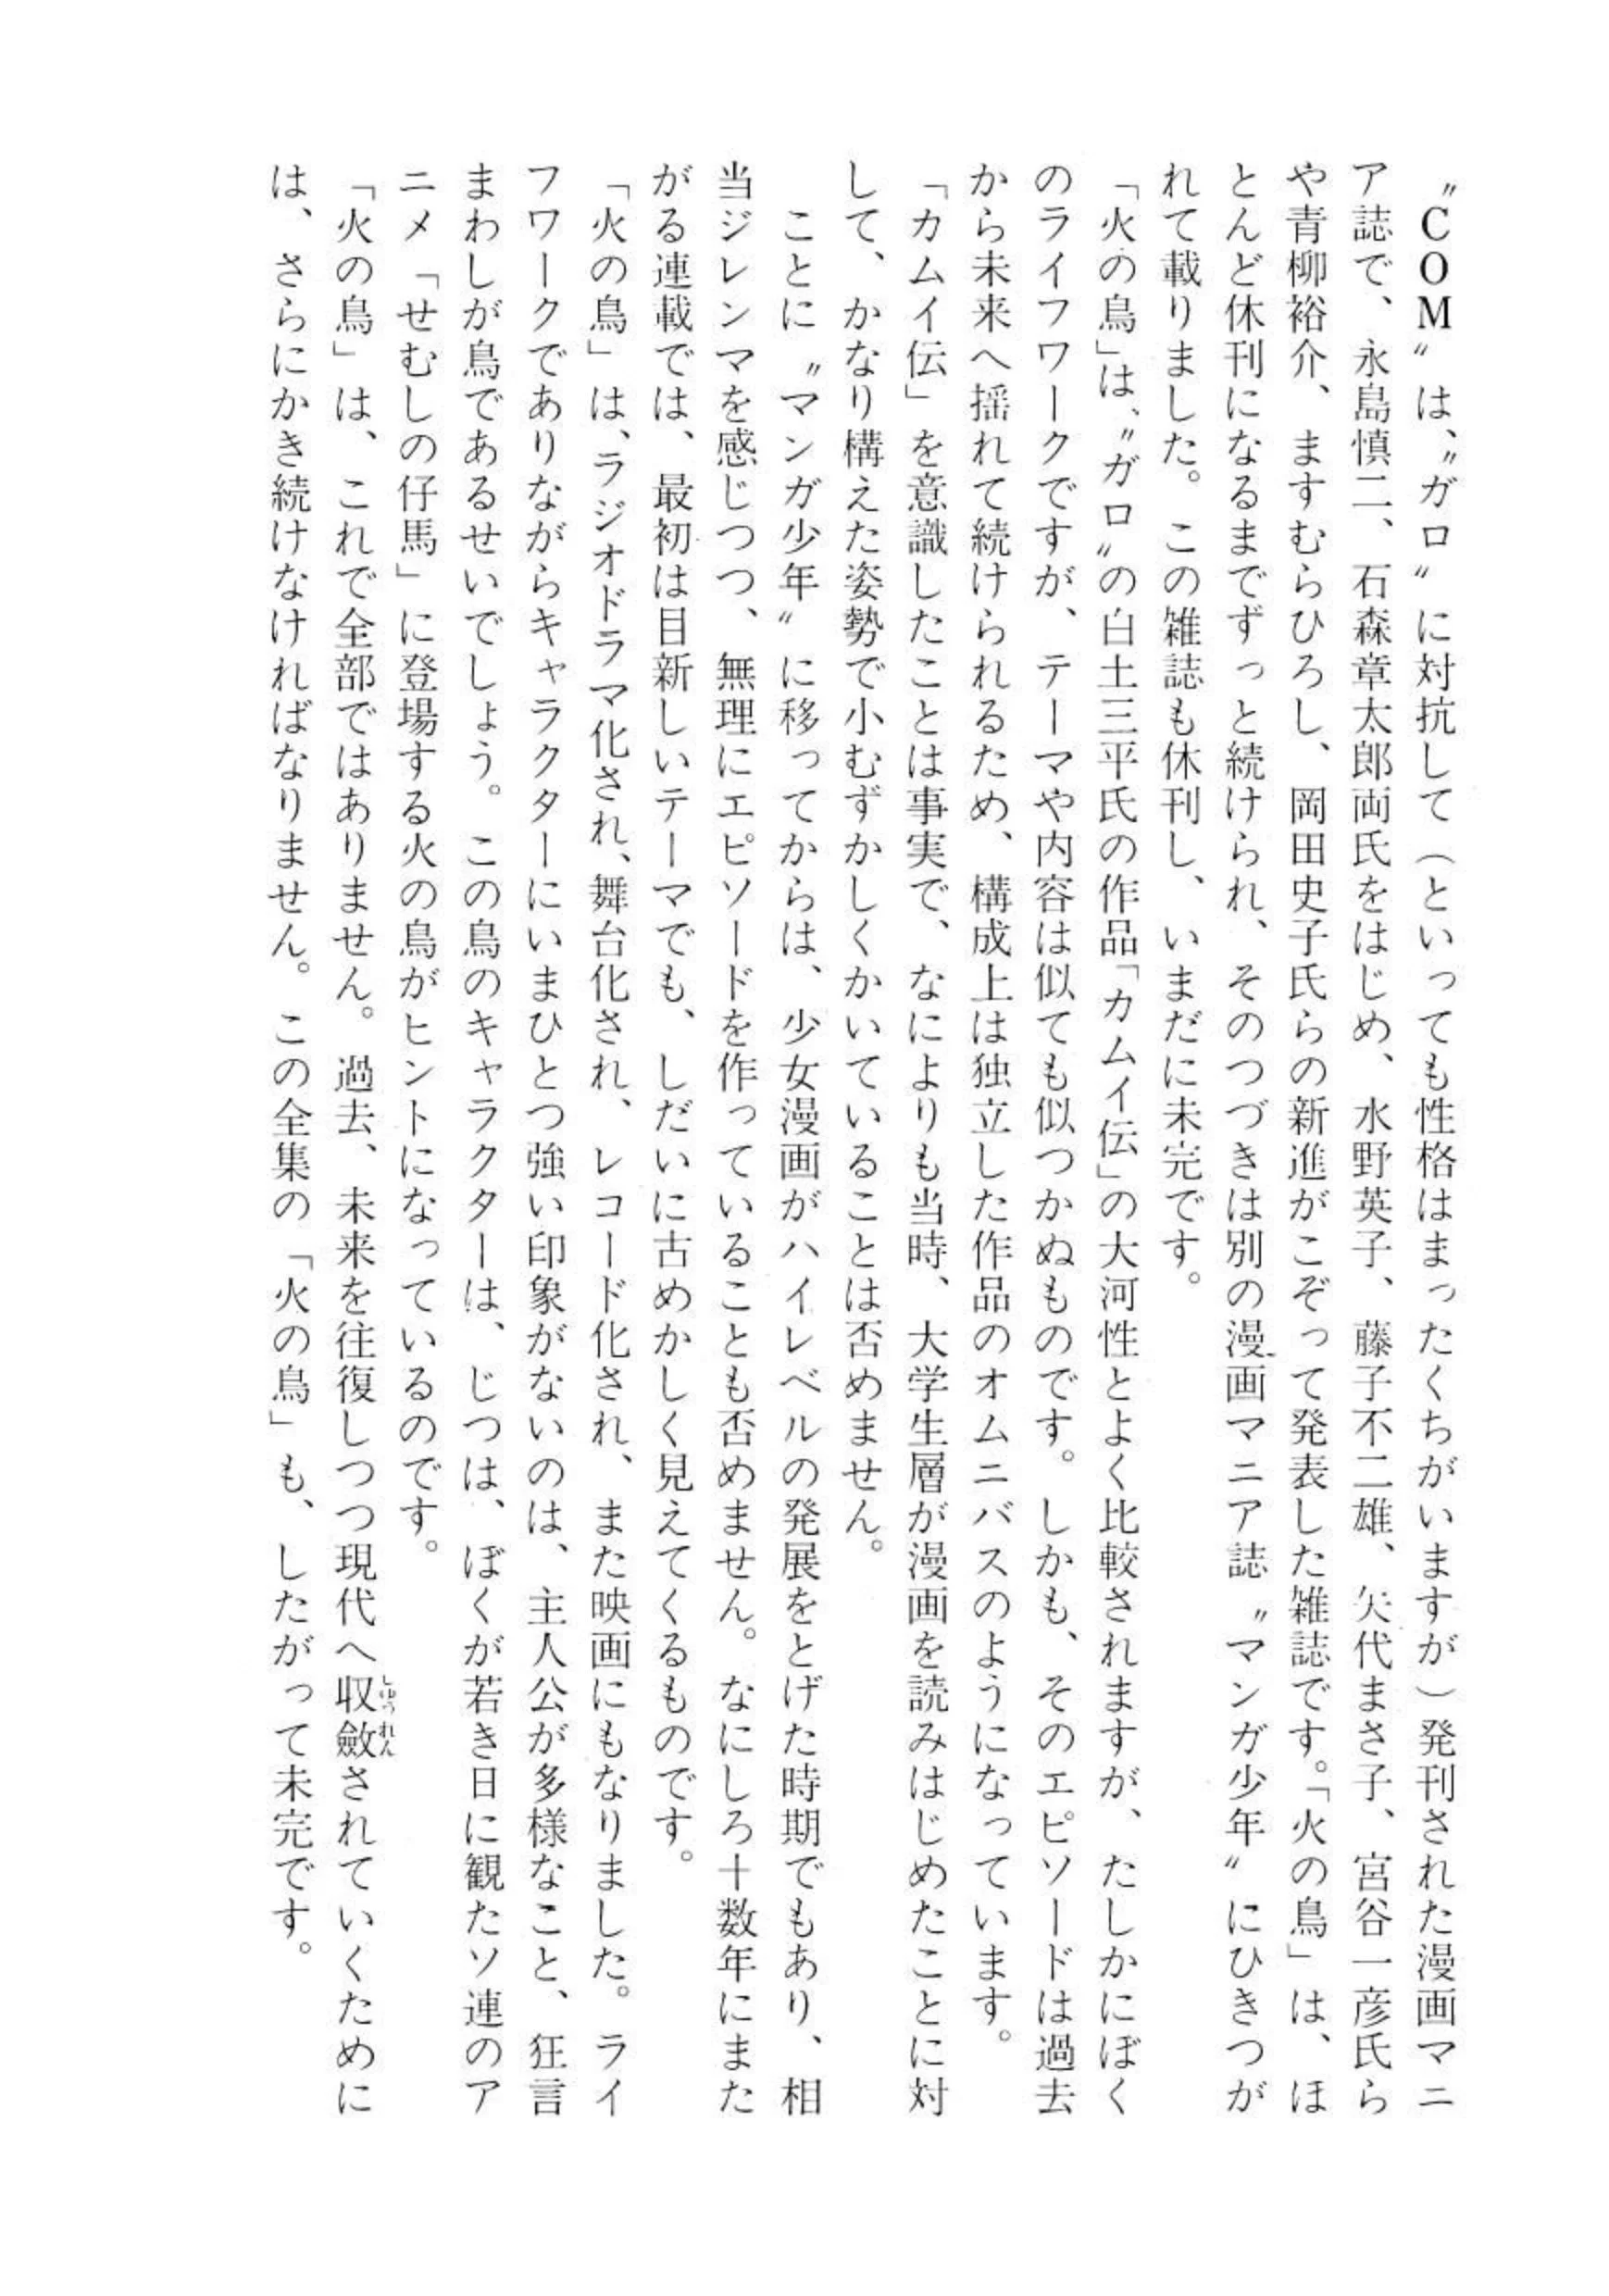 〝COM〟は、〝ガロ〟に対抗して（といっても性格はまったくちがいますが）発刊された漫画マニ
ア誌で、永島慎二、石森章太郎両氏をはじめ、水野英子、藤子不二雄、矢代まさ子、宮谷一彦氏ら
や青柳裕介、ますむらひろし、岡田史子氏らの新進がこぞって発表した雑誌です。「火の鳥」は、ほ
とんど休刊になるまでずっと続けられ、そのつづきは別の漫画マニア誌〝マンガ少年〟にひきつが
れて載りました。この雑誌も休刊し、いまだに未完です。
「火の鳥」は、〝ガロ〟の白土三平氏の作品「カムイ伝」の大河性とよく比較されますが、たしかにぼく
のライフワークですが、テーマや内容は似ても似つかぬものです。しかも、そのエピソードは過去
から未来へ揺れて続けられるため、構成上は独立した作品のオムニバスのようになっています。
「カムイ伝」を意識したことは事実で、なによりも当時、大学生層が漫画を読みはじめたことに対
して、かなり構えた姿勢で小むずかしくかいていることは否めません。
ことに〝マンガ少年〟に移ってからは、少女漫画がハイレベルの発展をとげた時期でもあり、相
当ジレンマを感じつつ、無理にエピソードを作っていることも否めません。なにしろ十数年にまた
がる連載では、最初は目新しいテーマでも、しだいに古めかしく見えてくるものです。
「火の鳥」は、ラジオドラマ化され、舞台化され、レコード化され、また映画にもなりました。ライ
フワークでありながらキャラクターにいまひとつ強い印象がないのは、主人公が多様なこと、狂言
まわしが鳥であるせいでしょう。この鳥のキャラクターは、じつは、ぼくが若き日に観たソ連のア
ニメ「せむしの仔馬」に登場する火の鳥がヒントになっているのです。
「火の鳥」は、これで全部ではありません。過去、未来を往復しつつ現代へ収斂されていくために
は、さらにかき続けなければなりません。この全集の「火の鳥」も、したがって未完です。